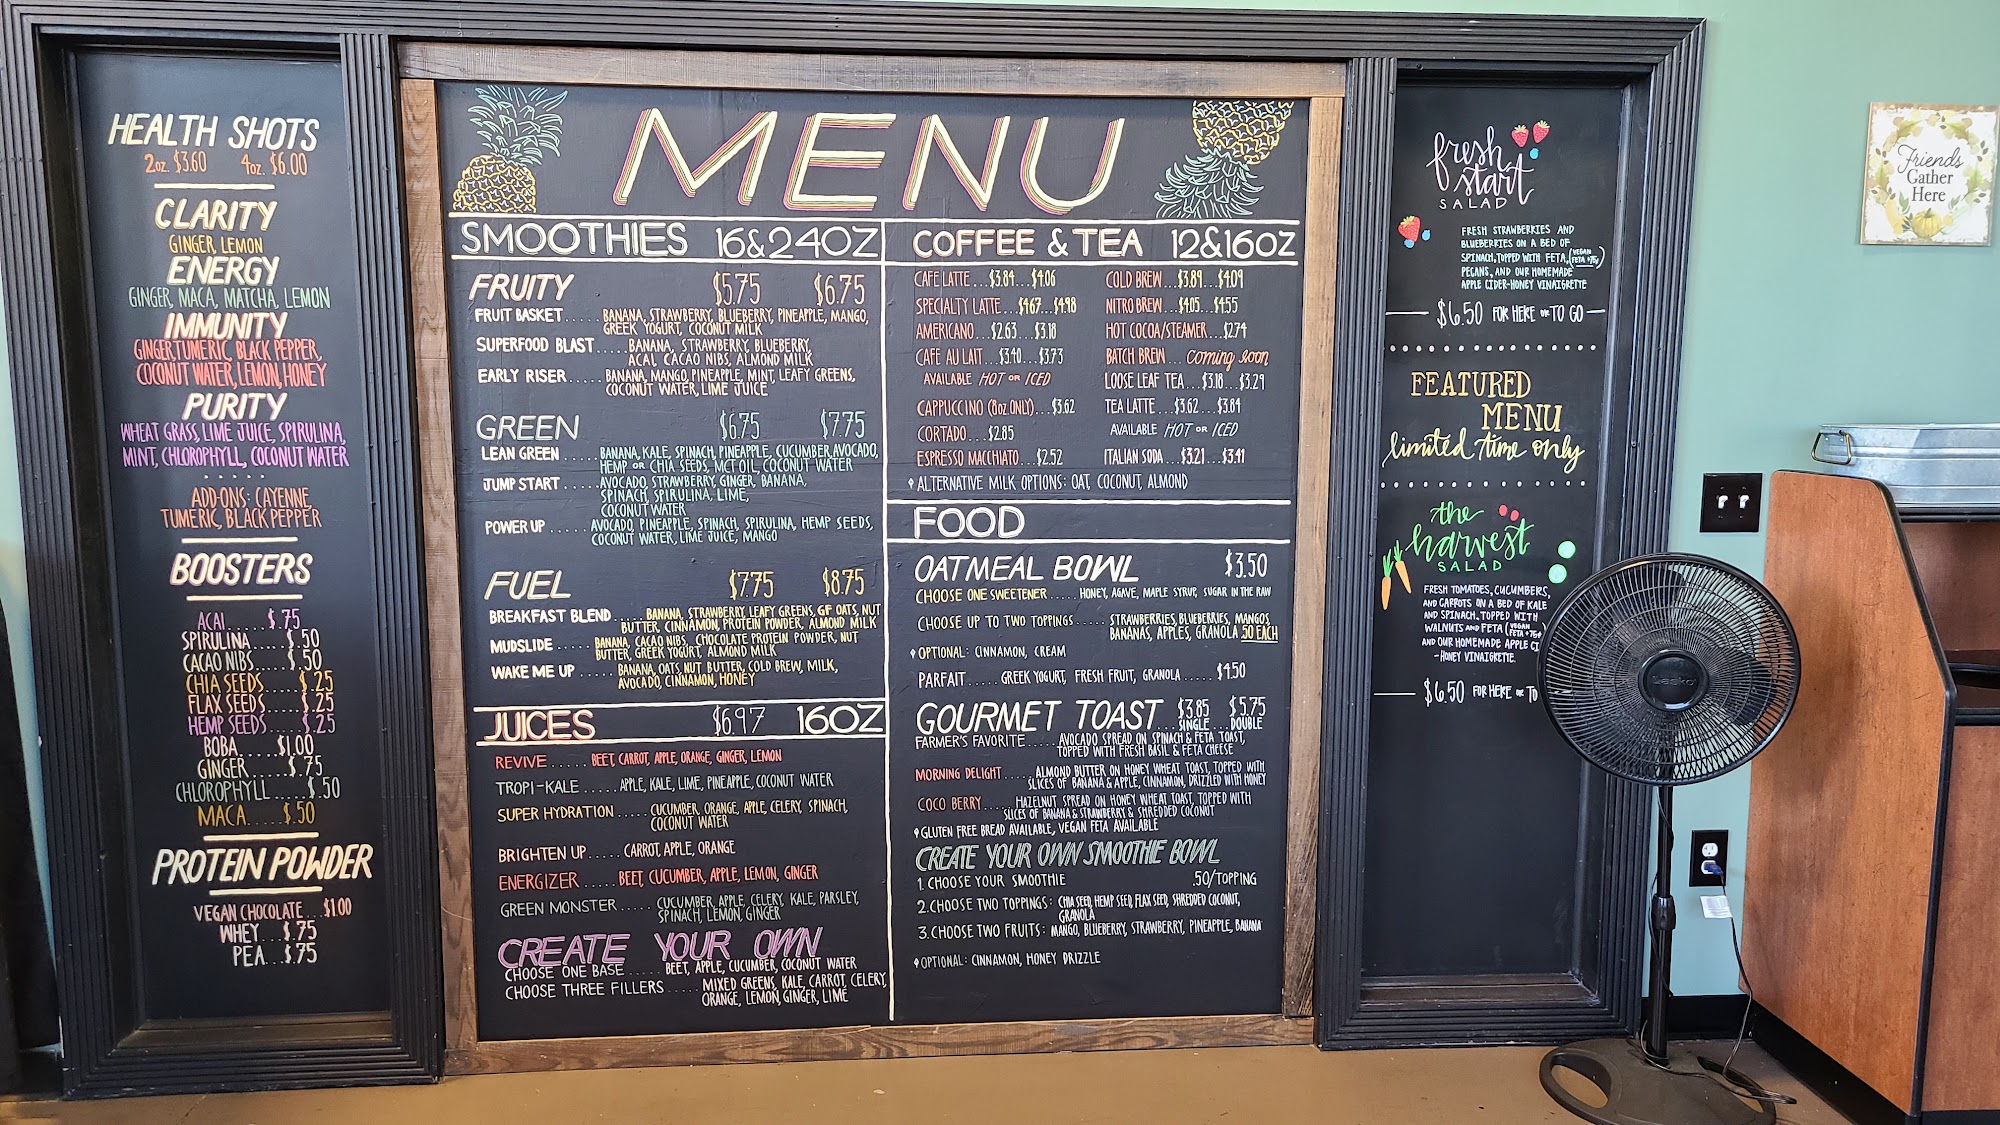 HEALTH SHOTS
2oz. $3.60 4oz. $6.00
CLARITY
GINGER, LEMON
ENERGY
GINGER, MACA, MATCHA, LEMON
IMMUNITY
GINGER, TUMERIC, BLACK PEPPER,
COCONUT WATER, LEMON, HONEY
PURITY
WHEAT GRASS, LIME JUICE, SPIRULINA,
MINT, CHLOROPHYLL, COCONUT WATER
ADD-ONS: CAYENNE,
TUMERIC, BLACK PEPPER
BOOSTERS
ACAI......$.75
SPIRULINA....$.50
CACAO NIBS....$.50
CHIA SEEDS.....$.25
FLAX SEEDS.....$.25
HEMP SEEDS.....$.25
BOBA.....$1.00
GINGER....$.75
CHLOROPHYLL.....$.50
MACA.....$.50
PROTEIN POWDER
VEGAN CHOCOLATE...$1.00
WHEY...$.75
PEA...$.75
MENU
SMOOTHIES 16&24OZ
FRUITY $5.75 $6.75
FRUIT BASKET......BANANA, STRAWBERRY, BLUEBERRY, PINEAPPLE, MANGO,
GREEK YOGURT, COCONUT MILK
SUPERFOOD BLAST.....BANANA, STRAWBERRY, BLUEBERRY,
ACAI, CACAO NIBS, ALMOND MILK
EARLY RISER......BANANA, MANGO, PINEAPPLE, MINT, LEAFY GREENS,
COCONUT WATER, LIME JUICE
GREEN $6.75 $7.75
LEAN GREEN.....BANANA, KALE, SPINACH, PINEAPPLE, CUCUMBER, AVOCADO,
HEMP OR CHIA SEEDS, MCT OIL, COCONUT WATER
JUMP START.....AVOCADO, STRAWBERRY, GINGER, BANANA,
SPINACH, SPIRULINA, LIME,
COCONUT WATER
POWER UP......AVOCADO, PINEAPPLE, SPINACH, SPIRULINA, HEMP SEEDS,
COCONUT WATER, LIME JUICE, MANGO
FUEL $7.75 $8.75
BREAKFAST BLEND.....BANANA, STRAWBERRY, LEAFY GREENS, GF OATS, NUT
BUTTER, CINNAMON, PROTEIN POWDER, ALMOND MILK
MUDSLIDE.....BANANA, CACAO NIBS, CHOCOLATE PROTEIN POWDER, NUT
BUTTER, GREEK YOGURT, ALMOND MILK
WAKE ME UP......BANANA, OATS, NUT BUTTER, COLD BREW, MILK,
AVOCADO, CINNAMON, HONEY
JUICES $6.97 16OZ
REVIVE......BEET, CARROT, APPLE, ORANGE, GINGER, LEMON
TROPI-KALE......APPLE, KALE, LIME, PINEAPPLE, COCONUT WATER
SUPER HYDRATION.....CUCUMBER, ORANGE, APPLE, CELERY, SPINACH,
COCONUT WATER
BRIGHTEN UP.....CARROT, APPLE, ORANGE
ENERGIZER.....BEET, CUCUMBER, APPLE, LEMON, GINGER
GREEN MONSTER.....CUCUMBER, APPLE, CELERY, KALE, PARSLEY,
SPINACH, LEMON, GINGER
CREATE YOUR OWN
CHOOSE ONE BASE.....BEET, APPLE, CUCUMBER, COCONUT WATER
CHOOSE THREE FILLERS.....MIXED GREENS, KALE, CARROT, CELERY,
ORANGE, LEMON, GINGER, LIME
COFFEE & TEA 12&16OZ
CAFE LATTE...$3.84...$4.06
SPECIALTY LATTE...$4.67...$4.98
AMERICANO...$2.63...$3.18
CAFE AU LAIT...$3.40...$3.73
AVAILABLE HOT OR ICED
CAPPUCCINO (8oz. ONLY)...$3.62
CORTADO...$2.85
ESPRESSO MACCHIATO...$2.52
COLD BREW...$3.89...$4.09
NITRO BREW...$4.05...$4.55
HOT COCOA/STEAMER...$2.74
BATCH BREW... coming soon
LOOSE LEAF TEA...$3.18...$3.29
TEA LATTE...$3.62...$3.84
AVAILABLE HOT OR ICED
ITALIAN SODA...$3.21...$3.41
ALTERNATIVE MILK OPTIONS: OAT, COCONUT, ALMOND
FOOD
OATMEAL BOWL $3.50
CHOOSE ONE SWEETENER.....HONEY, AGAVE, MAPLE SYRUP, SUGAR IN THE RAW
CHOOSE UP TO TWO TOPPINGS.....STRAWBERRIES, BLUEBERRIES, MANGOS,
BANANAS, APPLES, GRANOLA .50 EACH
OPTIONAL: CINNAMON, CREAM
PARFAIT.....GREEK YOGURT, FRESH FRUIT, GRANOLA.....$4.50
GOURMET TOAST $3.85 $5.75
SINGLE...DOUBLE
FARMER'S FAVORITE.....AVOCADO SPREAD ON SPINACH & FETA TOAST,
TOPPED WITH FRESH BASIL & FETA CHEESE
MORNING DELIGHT.....ALMOND BUTTER ON HONEY WHEAT TOAST, TOPPED WITH
SLICES OF BANANA & APPLE, CINNAMON, DRIZZLED WITH HONEY
COCO BERRY....HAZELNUT SPREAD ON HONEY WHEAT TOAST, TOPPED WITH
SLICES OF BANANA & STRAWBERRY & SHREDDED COCONUT
GLUTEN FREE BREAD AVAILABLE, VEGAN FETA AVAILABLE
CREATE YOUR OWN SMOOTHIE BOWL
1. CHOOSE YOUR SMOOTHIE .50/TOPPING
2. CHOOSE TWO TOPPINGS: CHIA SEED, HEMP SEED, FLAX SEED, SHREDDED COCONUT,
GRANOLA
3. CHOOSE TWO FRUITS: MANGO, BLUEBERRY, STRAWBERRY, PINEAPPLE, BANANA
OPTIONAL: CINNAMON, HONEY DRIZZLE
fresh
start
SALAD
FRESH STRAWBERRIES AND
BLUEBERRIES ON A BED OF
SPINACH, TOPPED WITH FETA, (VEGAN FETA +75¢)
PECANS, AND OUR HOMEMADE
APPLE CIDER-HONEY VINAIGRETTE
$6.50 FOR HERE OR TO GO
FEATURED
MENU
limited time only
the
harvest
SALAD
FRESH TOMATOES, CUCUMBERS,
AND CARROTS ON A BED OF KALE
AND SPINACH, TOPPED WITH
WALNUTS AND FETA (VEGAN FETA +75¢)
AND OUR HOMEMADE APPLE CI
-HONEY VINAIGRETTE.
$6.50 FOR HERE OR TO
Friends
Gather
Here
Lasko